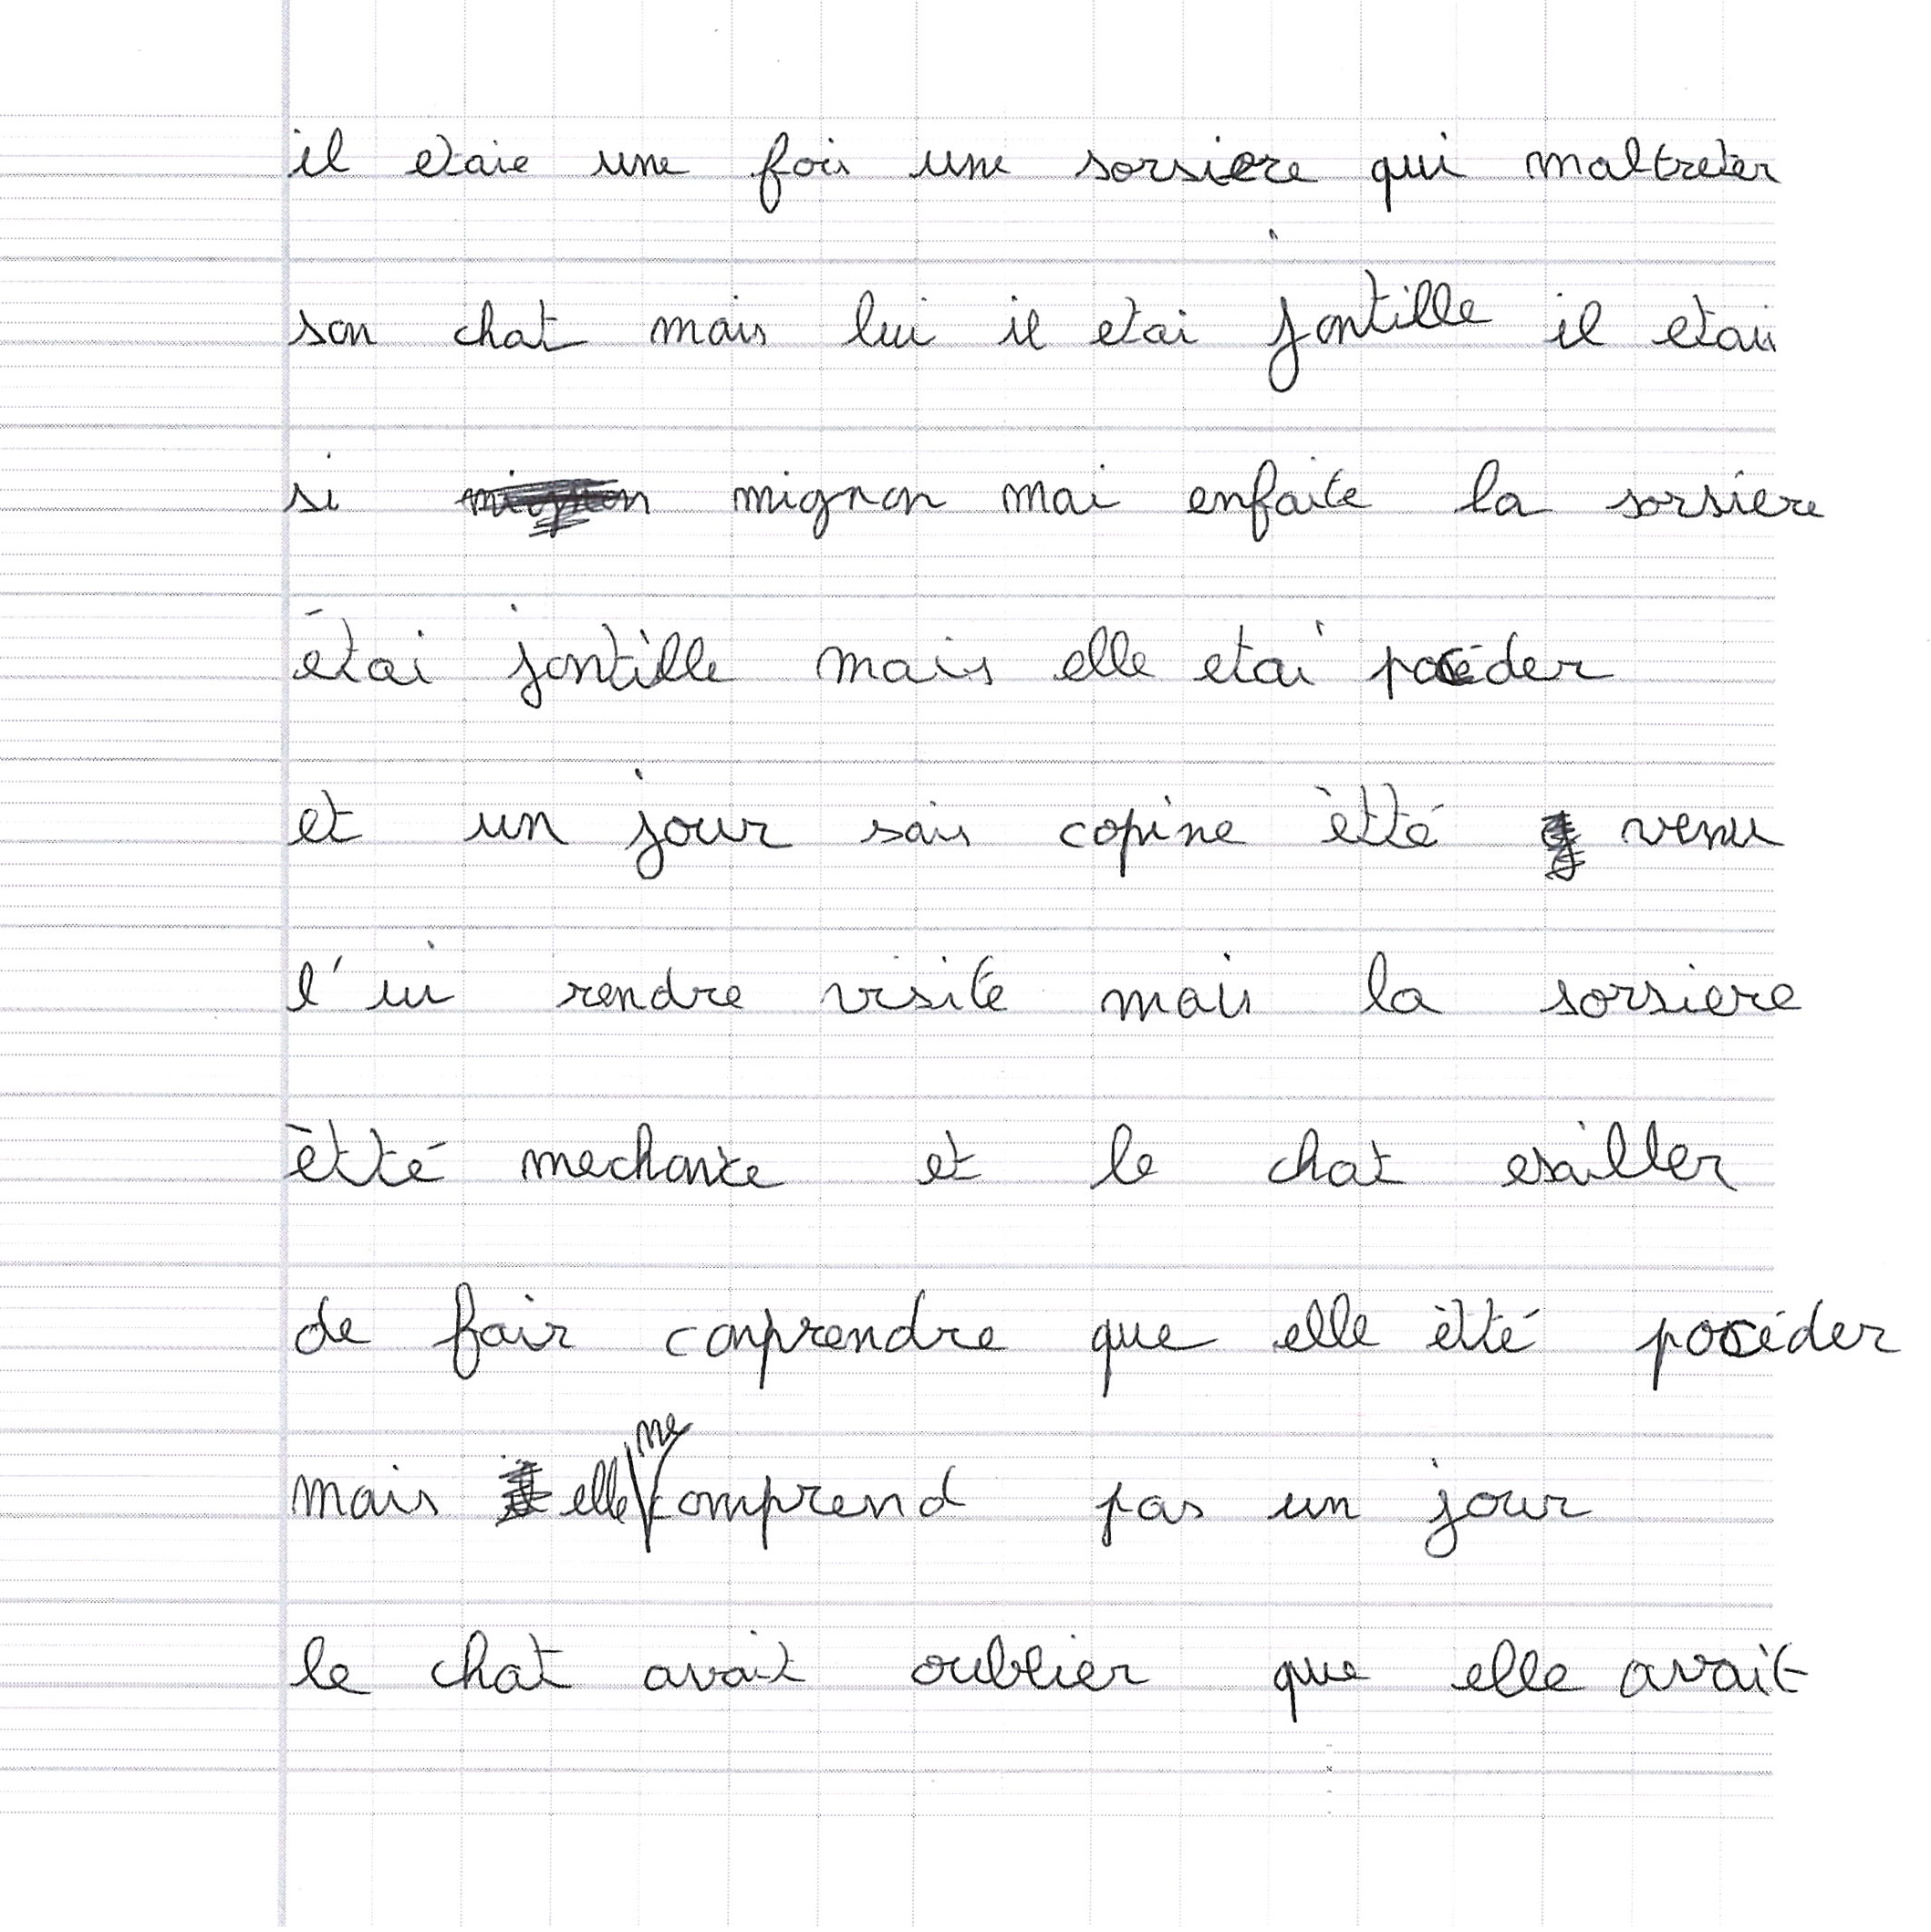 il etaie une fois une sorsiere qui maltreter
son chat mais lui il etai jontille il etais
si mignon mai enfaite la sorsiere
étai jontille mais elle etai pocéder
et un jour sais copine ètté venu
l'ui rendre visite mais la sorsiere
ètté mechante et le chat esailler
de fair conprendre que elle ètté pocéder
mais elle ne comprend pas un jour
le chat avait oublier que elle avait